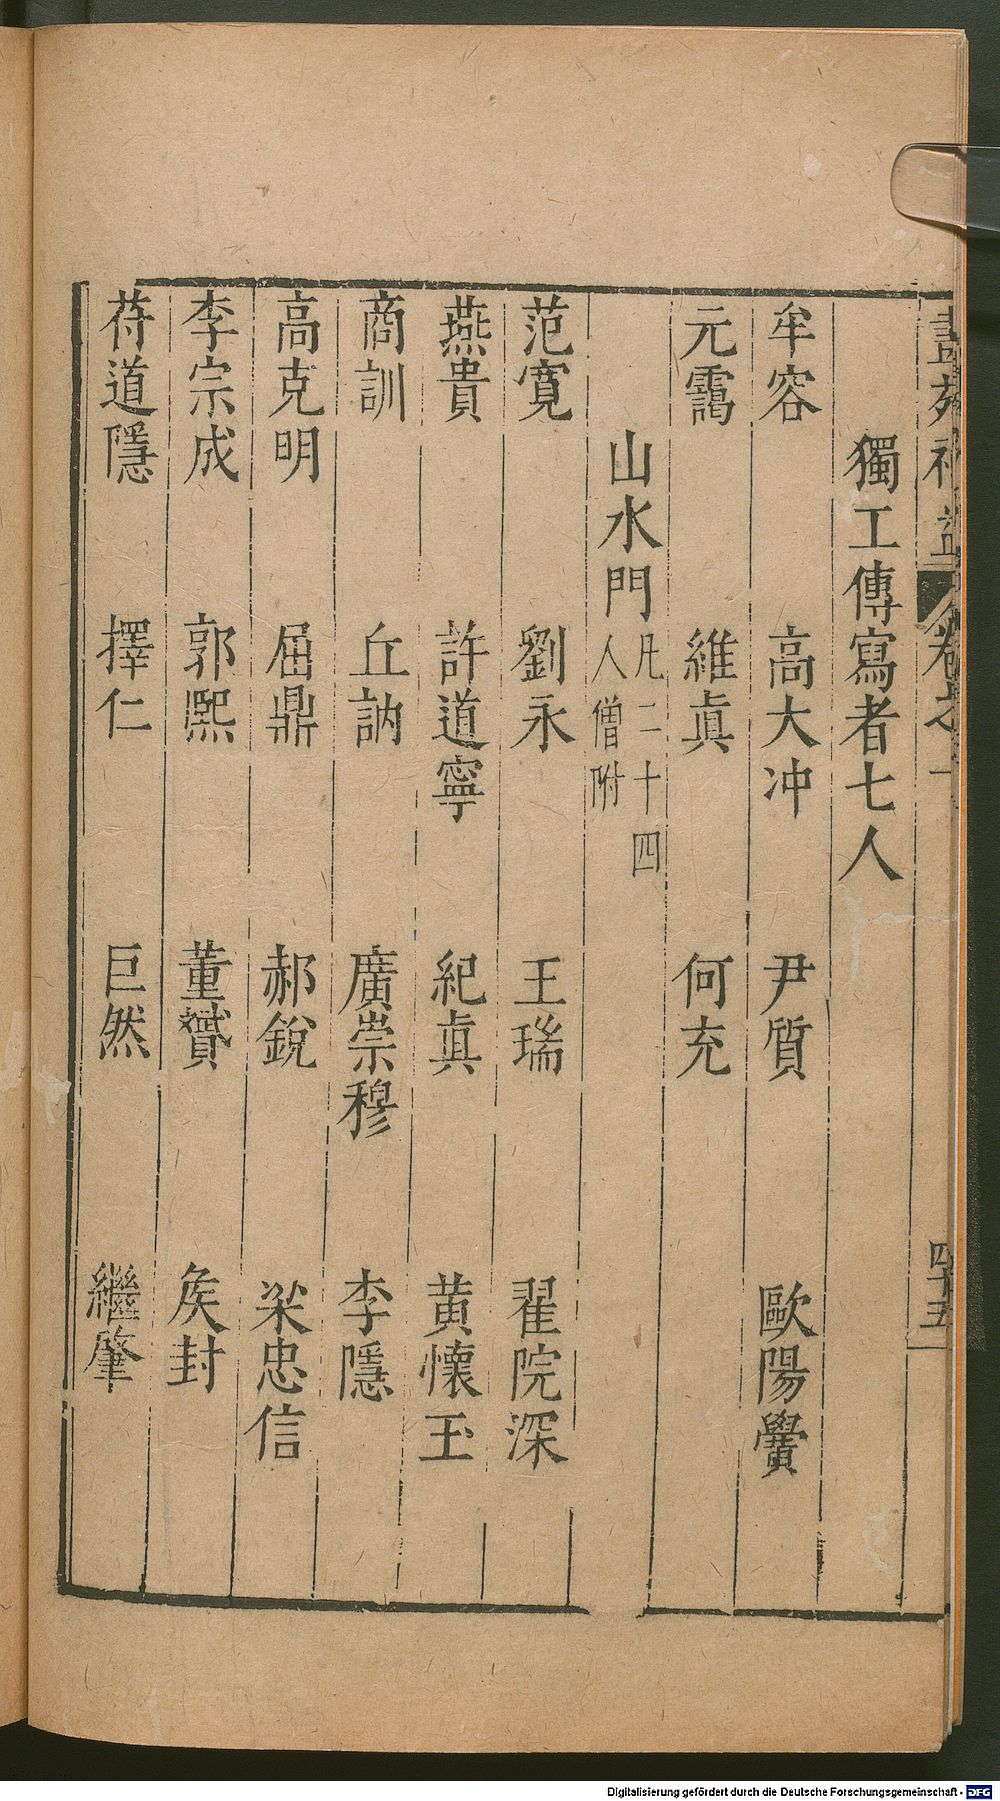 畫苑補益 卷之一 四十五
獨工傳寫者七人
牟容 高大冲 尹質 歐陽黌
元靄 維眞 何充
山水門 凡二十四
人僧附
范寬 劉永 王瑞 翟院深
燕貴 許道寧 紀眞 黄懷玉
商訓 丘訥 廣崇穆 李隱
高克明 屈鼎 郝銳 梁忠信
李宗成 郭熙 董贇 矦封
苻道隱 擇仁 巨然 繼肇
Digitalisierung gefördert durch die Deutsche Forschungsgemeinschaft - DFG